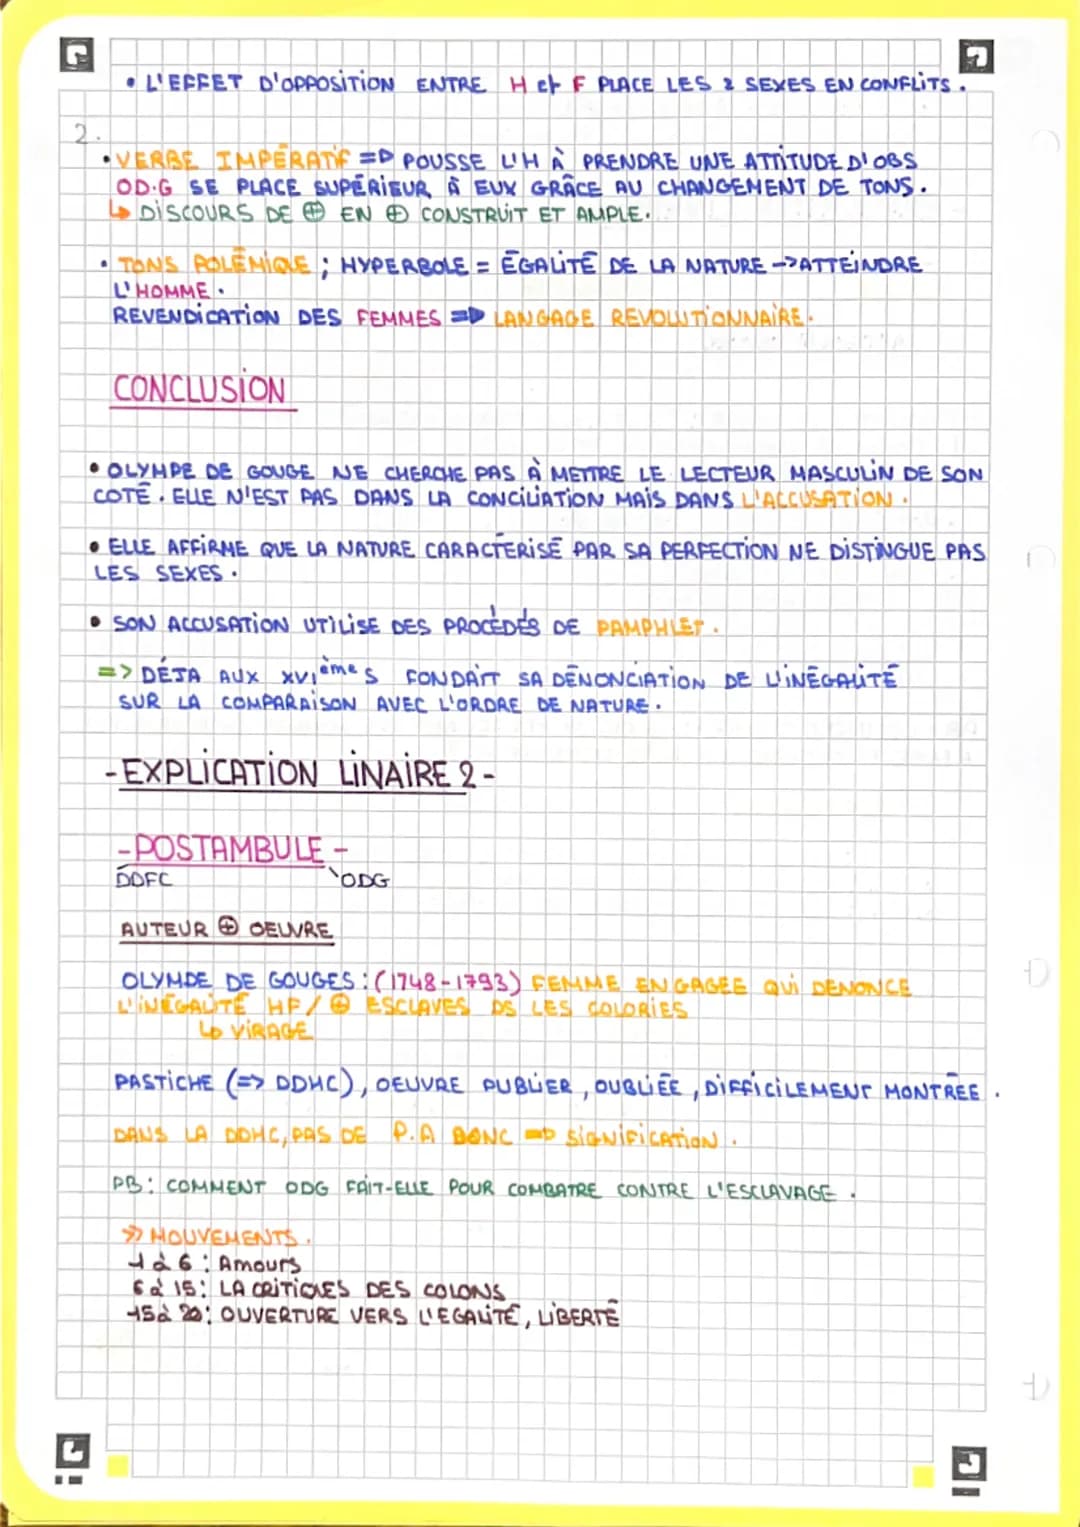 • L'EFFET D'OPPOSITION ENTRE H et F PLACE LES 2 SEXES EN CONFLITS.
2.
• VERBE IMPÉRATIF => POUSSE L'H À PRENDRE UNE ATTITUDE D'OBS
OD.G SE PLACE SUPÉRIEUR À EUX GRÂCE AU CHANGEMENT DE TONS.
↳ DISCOURS DE ⊕ EN ⊕ CONSTRUIT ET AMPLE.
• TONS POLÉMIQUE ; HYPERBOLE = ÉGALITÉ DE LA NATURE -> ATTEINDRE
L'HOMME.
REVENDICATION DES FEMMES => LANGAGE REVOLUTIONNAIRE.
CONCLUSION
• OLYMPE DE GOUGE NE CHERCHE PAS À METTRE LE LECTEUR MASCULIN DE SON
COTÉ. ELLE N'EST PAS DANS LA CONCILIATION MAIS DANS L'ACCUSATION.
• ELLE AFFIRME QUE LA NATURE CARACTERISÉ PAR SA PERFECTION NE DISTINGUE PAS
LES SEXES.
• SON ACCUSATION UTILISE DES PROCÉDÉS DE PAMPHLET.
=> DÉJA AUX XVIème S FONDAIT SA DÉNONCIATION DE L'INÉGALITÉ
SUR LA COMPARAISON AVEC L'ORDRE DE NATURE.
- EXPLICATION LINAIRE 2 -
- POSTAMBULE -
DDFC ODG
AUTEUR ⊕ OEUVRE
OLYMDE DE GOUGES : (1748-1793) FEMME ENGAGÉE QUI DENONCE
L'INÉGALITÉ HF/ ⊕ ESCLAVES DS LES COLORIES
↳ VIRAGE
PASTICHE (=> DDHC), OEUVRE PUBLIER, OUBLIÉE, DIFFICILEMENT MONTRÉE.
DANS LA DDHC, PAS DE P.A DONC => SIGNIFICATION.
PB : COMMENT ODG FAIT-ELLE POUR COMBATRE CONTRE L'ESCLAVAGE.
>> MOUVEMENTS.
1 à 6 : Amours
6 à 15 : LA CRITIQUES DES COLONS
15 à 20 : OUVERTURE VERS L'EGALITÉ, LIBERTÉ